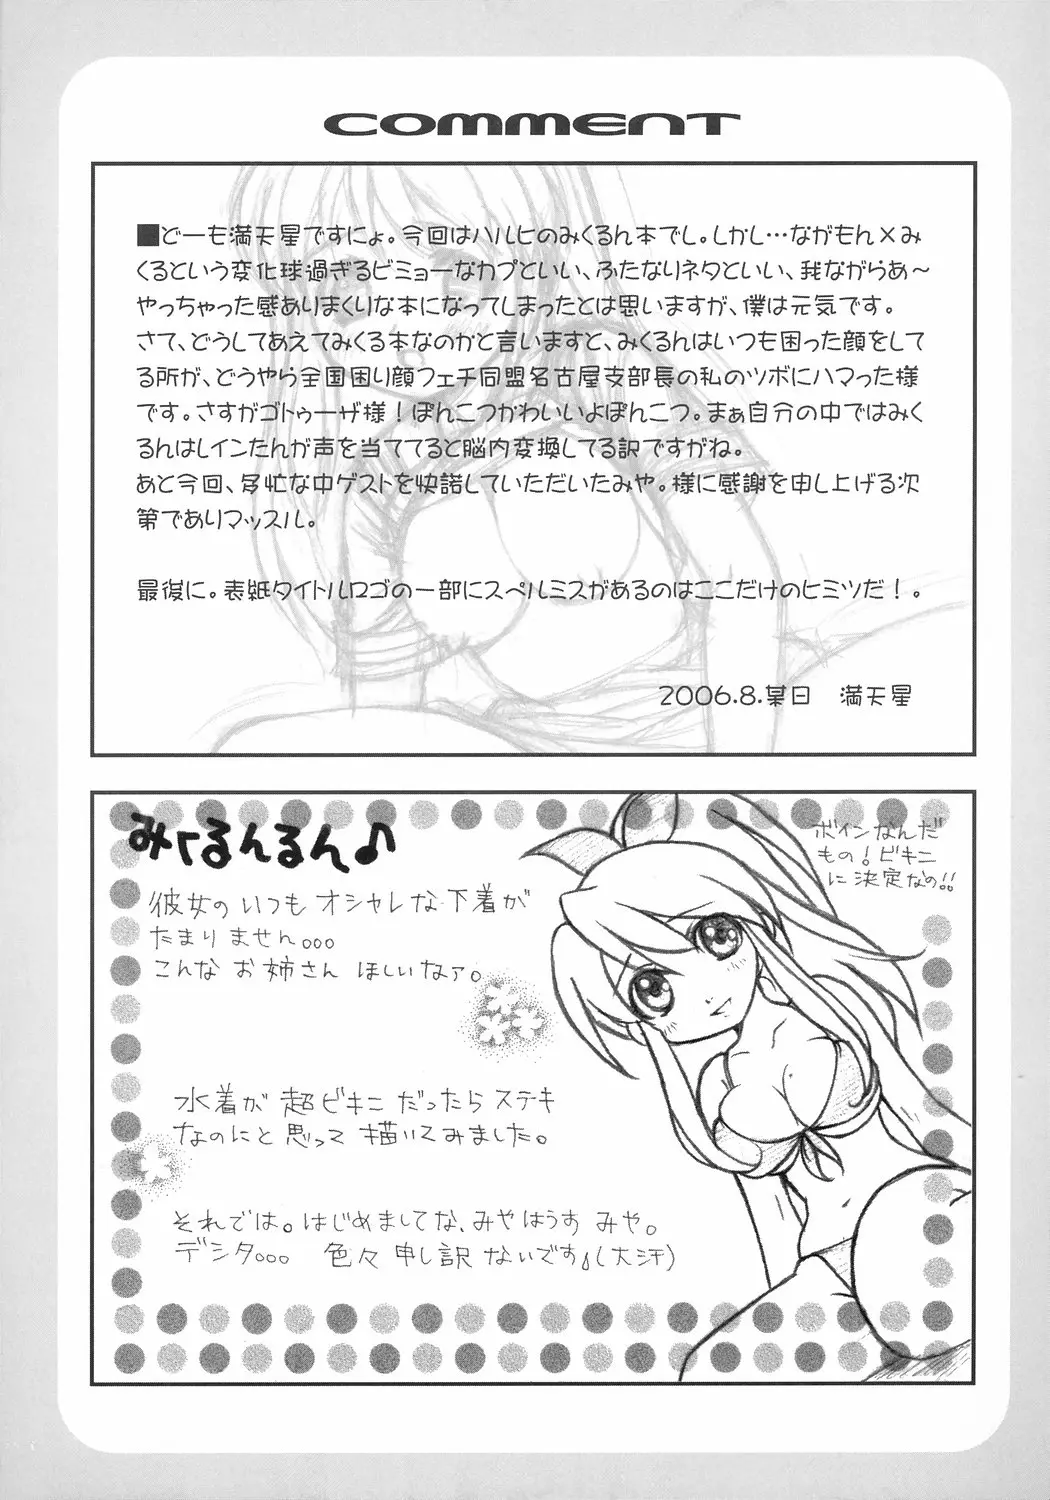 COMMENT
■どーも満天星ですにょ。今回はハルヒのみくるん本でし。しかし…ながもん×み
くるという変化球過ぎるビミョーなカプといい、ふたなりネタといい、我ながらあ～
やっちゃった感ありまくりな本になってしまったとは思いますが、僕は元気です。
さて、どうしてあえてみくる本なのかと言いますと、みくるんはいつも困った顔をして
る所が、どうやら全国困り顔フェチ同盟名古屋支部長の私のツボにハマった様
です。さすがゴトゥーザ様！ぽんこつかわいいよぽんこつ。まぁ自分の中ではみく
るんはレインたんが声を当ててると脳内変換してる訳ですがね。
あと今回、多忙な中ゲストを快諾していただいたみや。様に感謝を申し上げる次
第でありマッスル。
最後に。表紙タイトルロゴの一部にスペルミスがあるのはここだけのヒミツだ！。
2006.8.某日　満天星
みくるんるん♪
ボインなんだ
もの！ビキニ
に決定なの!!
彼女のいつもオシャレな下着が
たまりません。。。
こんなお姉さん ほしいなァ。
水着が 超ビキニ だったら ステキ
なのにと思って描いてみました。
それでは。はじめましてな、みやはうす みや。
デシタ。。。 色々申し訳ないです(大汗)